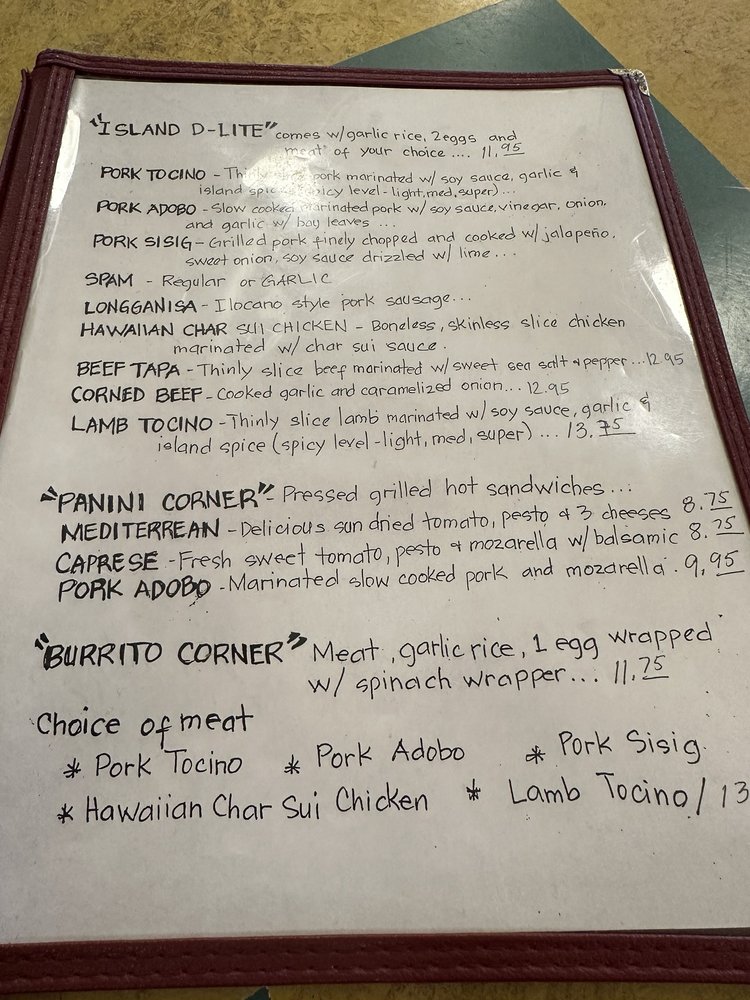 "ISLAND D-LITE" comes w/garlic rice, 2eggs and
meat of your choice .... 11.95
PORK TOCINO - Thinly slice pork marinated w/ soy sauce, garlic &
island spice (spicy level-light, med, super)...
PORK ADOBO - Slow cooked marinated pork w/ soy sauce, vinegar, onion,
and garlic w/ bay leaves ...
PORK SISIG - Grilled pork finely chopped and cooked w/ jalapeño,
sweet onion, soy sauce drizzled w/ lime...
SPAM - Regular or GARLIC
LONGGANISA - Ilocano style pork sausage...
HAWAIIAN CHAR SUI CHICKEN - Boneless, skinless slice chicken
marinated w/ char sui sauce.
BEEF TAPA - Thinly slice beef marinated w/ sweet sea salt & pepper...12.95
CORNED BEEF - Cooked garlic and caramelized onion... 12.95
LAMB TOCINO - Thinly slice lamb marinated w/ soy sauce, garlic &
island spice (spicy level-light, med, super) ... 13.75
"PANINI CORNER" - Pressed grilled hot sandwiches...
MEDITERREAN - Delicious sun dried tomato, pesto & 3 cheeses 8.75
CAPRESE - Fresh sweet tomato, pesto & mozarella w/ balsamic 8.75
PORK ADOBO - Marinated slow cooked pork and mozarella. 9.95
"BURRITO CORNER" Meat, garlic rice, 1 egg wrapped
w/ spinach wrapper... 11.75
Choice of meat
* Pork Tocino * Pork Adobo * Pork Sisig
* Hawaiian Char Sui Chicken * Lamb Tocino / 13